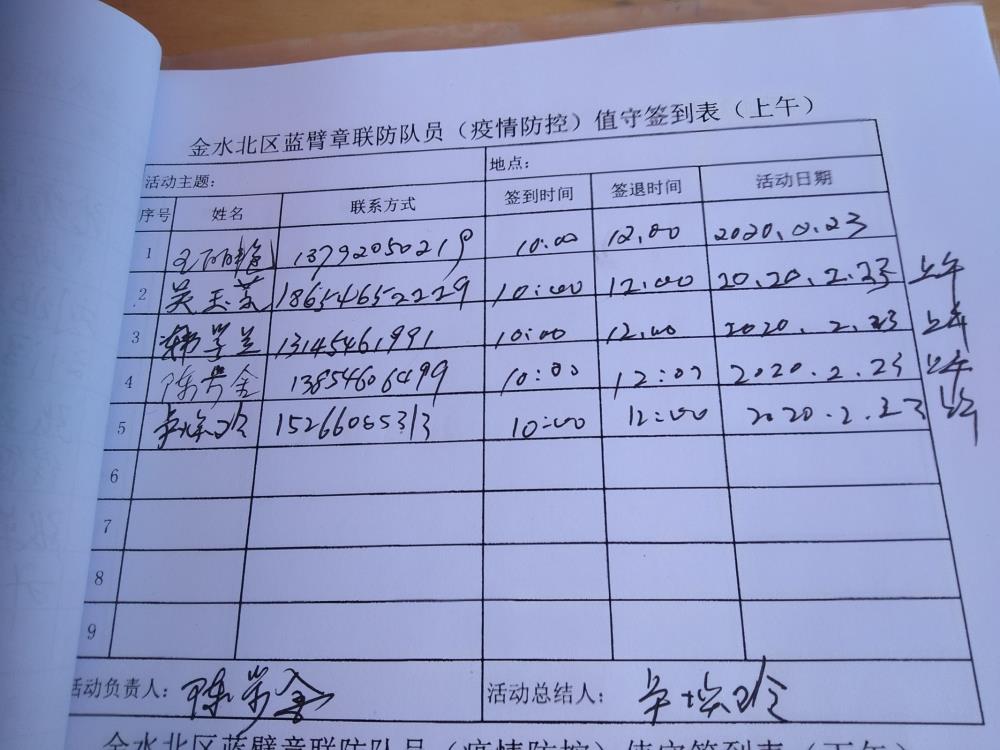 金水北区蓝臂章联防队员（疫情防控）值守签到表（上午）
活动主题： 地点：
序号 姓名 联系方式 签到时间 签退时间 活动日期
1 13792050219 10:00 12.00 2020.0.23
2 吴玉芬 18654652229 10:00 12.00 20.20.2.23 上午
3 韩学兰 13145461991 10:00 12.00 2020.2.23 上午
4 陈芳金 13854606499 10:00 12:00 2020.2.23 上午
5 15266055313 10:00 12:00 2020.2.23 上午
6
7
8
9
活动负责人：陈芳金 活动总结人：
金水北区蓝臂章联防队员（疫情防控）值守签到表（下午）